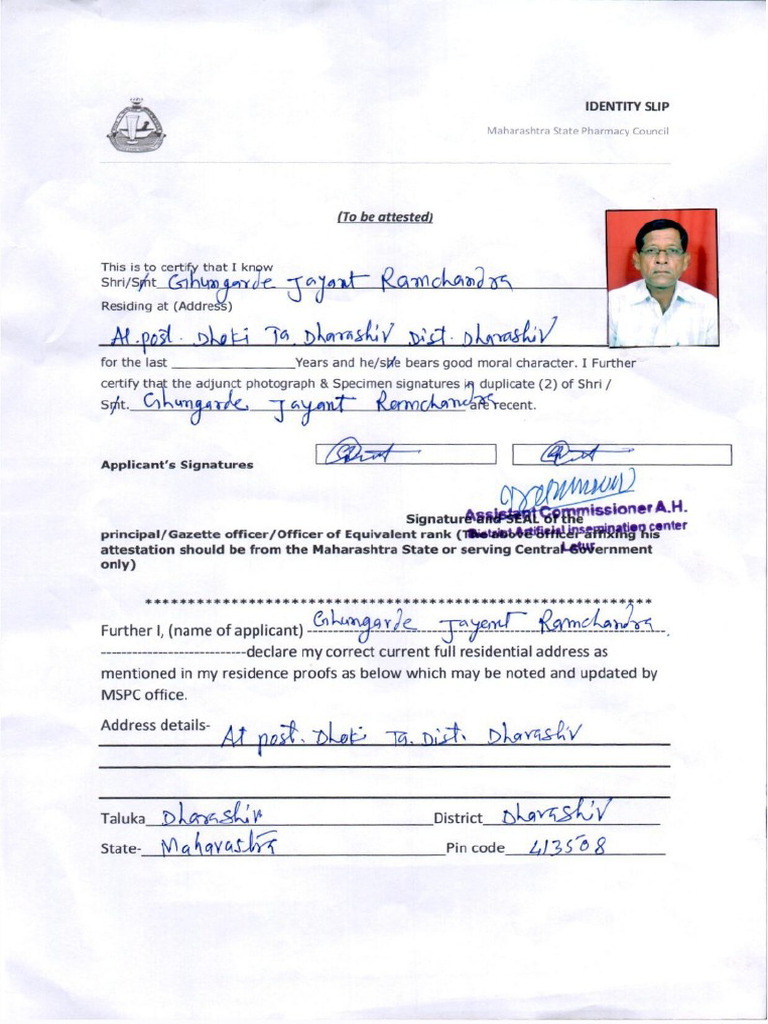 IDENTITY SLIP
Maharashtra State Pharmacy Council
(To be attested)
This is to certify that I know
Shri/Smt Ghungarde Jayant Ramchandra
Residing at (Address)
At. post. Dhoki Ta. Dharashiv Dist. Dharashiv
for the last _________________Years and he/she bears good moral character. I Further
certify that the adjunct photograph & Specimen signatures in duplicate (2) of Shri /
Smt. Ghungarde Jayant Ramchandra are recent.
Applicant's Signatures
Assistant Commissioner A.H.
Signature and SEAL of the
District Artificial insemination center
principal/Gazette officer/Officer of Equivalent rank (The above officer affixing his
Latur
attestation should be from the Maharashtra State or serving Central Government
only)
************************************************************
Further I, (name of applicant) Ghungarde Jayant Ramchandra
----------------------------declare my correct current full residential address as
mentioned in my residence proofs as below which may be noted and updated by
MSPC office.
Address details- At post. Dhoki Ta. Dist. Dharashiv
Taluka Dharashiv District Dharashiv
State- Maharastra Pin code 413508